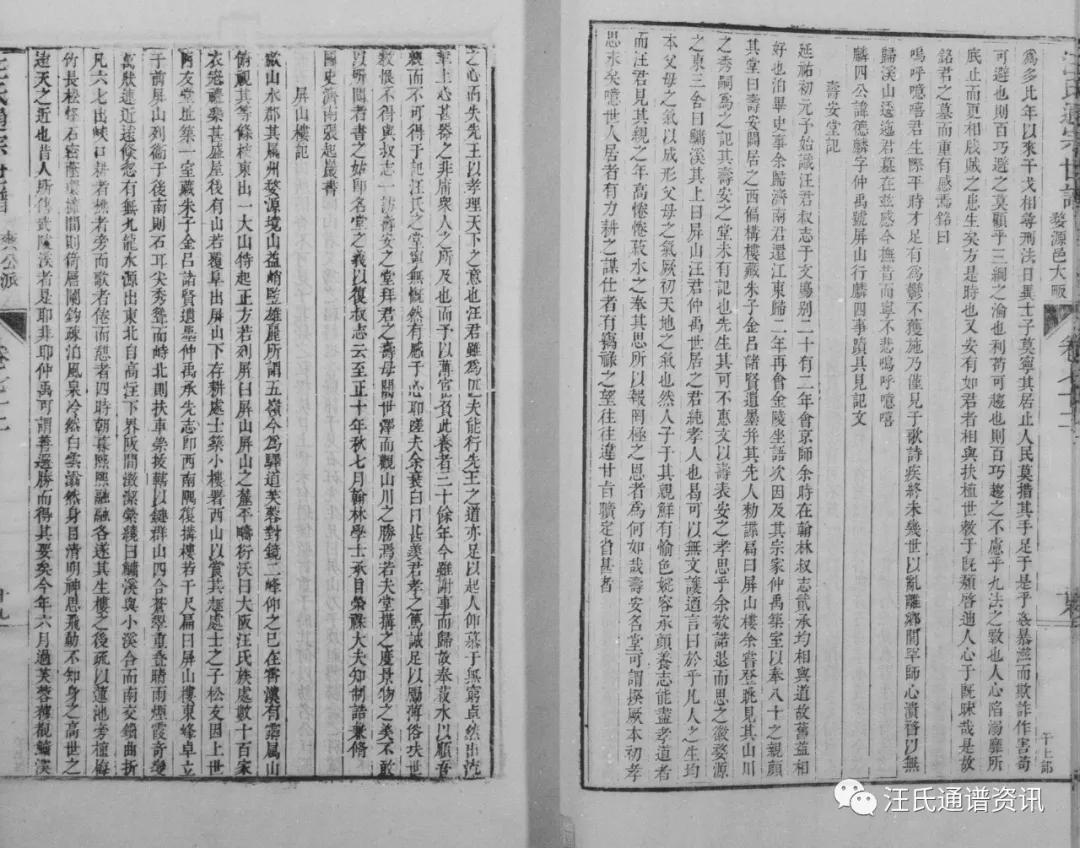 為多比年以來干戈相尋刑法日異士子莫寧其居止人民莫措其手足于是乎姦暴讌而欺詐作害苟
可避也則百巧避之莫顧乎三綱之淪也利苟可趨也則百巧趨之不慮乎九法之斁也人心陷溺靡所
底止而更相殘賊之患生矣方是時也又安有如君者相與扶植世教于既頹啓迪人心于既昧哉是故
銘君之墓而重有感焉銘曰
嗚呼噫嘻君生際平時才足有為鬱不獲施乃僅見于歌詩疾終未幾世以亂離鄉閭罕師心潰昏以無
歸溪山透迤君墓在玆感今撫昔而寧不悲嗚呼噫嘻
麟四公諱德麟字仲禹號屏山行麟四事蹟具見記文
壽安堂記
延祐初元予始識汪君叔志于文場別二十有二年會京師余時在翰林叔志貳承均相與道故舊益相
好也洎畢史事余歸濟南君還江東歸二年再會金陵坐語次因及其宗家仲禹築室以奉八十之親顏
其堂曰壽安闢居之西偏構樓藏朱子金呂諸賢遺墨并其先人勑諜扁曰屏山樓余嘗登眺見其山川
之秀嗣為之記其壽安之堂未有記也先生其可不惠文以壽表安之孝思乎余敬諾退而思之徽婺源
之東三舍曰鱅溪其上曰屏山汪君仲禹世居之君純孝人也曷可以無文諼遒言曰於乎凡人之生均
本父母之氣以成形父母之氣厥初天地之氣也然人子于其親鮮有愉色婉容承顏養志能盡孝道者
而汪君見其親之年高惓惓菽水之奉其思所以報罔極之思者為何如哉壽安名堂可謂探厥本初孝
思永矣噫世人居者有力耕之謀仕者有窩祿之望往往違廿旨曠定省甚者
之心而失先王以孝理天下之意也汪君雖為匹夫能行先王之道亦足以起人仰慕于無窮卓然出流
輩上心甚器之非庸衆人之所及也而予以薄宦
親而不可得于記汪氏之堂寧無慨然有感于志耶嗟夫余衰白日甚羙君孝之篤誠足以勵薄俗決世
教恨不得與叔志一訪壽安之堂拜君之壽母閱世澤而觀山川之勝焉若夫堂搆之度景物之美不敢
以所聞者書之姑即名堂之義以復叔志云至正十年秋七月翰林學士承旨榮祿大夫知制誥兼修
國史濟南張起巖書
屏山樓記
歙山水郡其屬州婺源境山益峭監雄麗所謂五嶺今為驛道芙蓉對鏡二峰仰之已在霄漢有霨屬山
俯視其等條枝東出一大山特起正方若列屏曰屏山屏山之麓平疇衍沃曰大阪汪氏族處數十百家
衣冠禮樂甚盛屋後有山若覆阜出屏山下存耕處士築小樓署西山以賞其趣處士之子松友因上世
兩友堂址築一室藏朱子金呂諸賢遺墨仲禹承先志即西南隅復搆樓若干尺扁曰屏山樓東峰卓立
于前屏山列衞于後南則石耳尖秀聳而峙北則扶車崇按轄以鍵群山四合蒼翠重疊晴雨煙霞奇變
萬狀連近遠倏忽有無九龍水源出東北自高注下界阪間澂潔縈繞曰鱅溪與小溪合而南交鎖曲折
凡六七出峽口耕者樵者旁而歌者倦而憩者四時朝暮熙熙融融各遂其生樓之後疏以蓮池旁植梅
竹長松怪石
違天之近也昔人所傳武陵溪者是耶非耶仲禹可謂善選勝而得其要矣今年六月過芙蓉樓觀鱅溪
婺源邑大畈
爽公派
汪氏通宗世譜
十九
汪氏通谱资讯